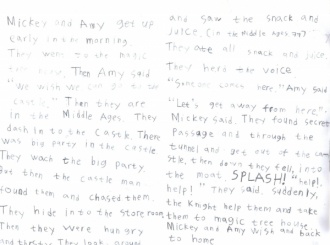 Mickey and Amy get up
early in the morning.
They went to the magic
tree house. Then Amy said
"We wish we can go to the
castle." Then they are
in the Middle Ages. They
dash in to the Castle. There
was big party in the castle.
They wach the big party.
But then the castle man
found them and chased them.
They hide into the store room
Then they were hungry
and thirsty. They look around
and saw the snack and
juice. (in the Middle Ages ??)
They ate all snack and juice.
They herd the voice
"Someone comes here." Amy said
"Let's get away from here".
Mickey said. They found secret
Passage and through the
tunnel and get out of the ca-
stle, then down they fell, into
the moat. SPLASH! "help!
help!" They said. Suddenly,
the Knight help them and take
them to magic tree house.
Mickey and Amy wish and back
to home